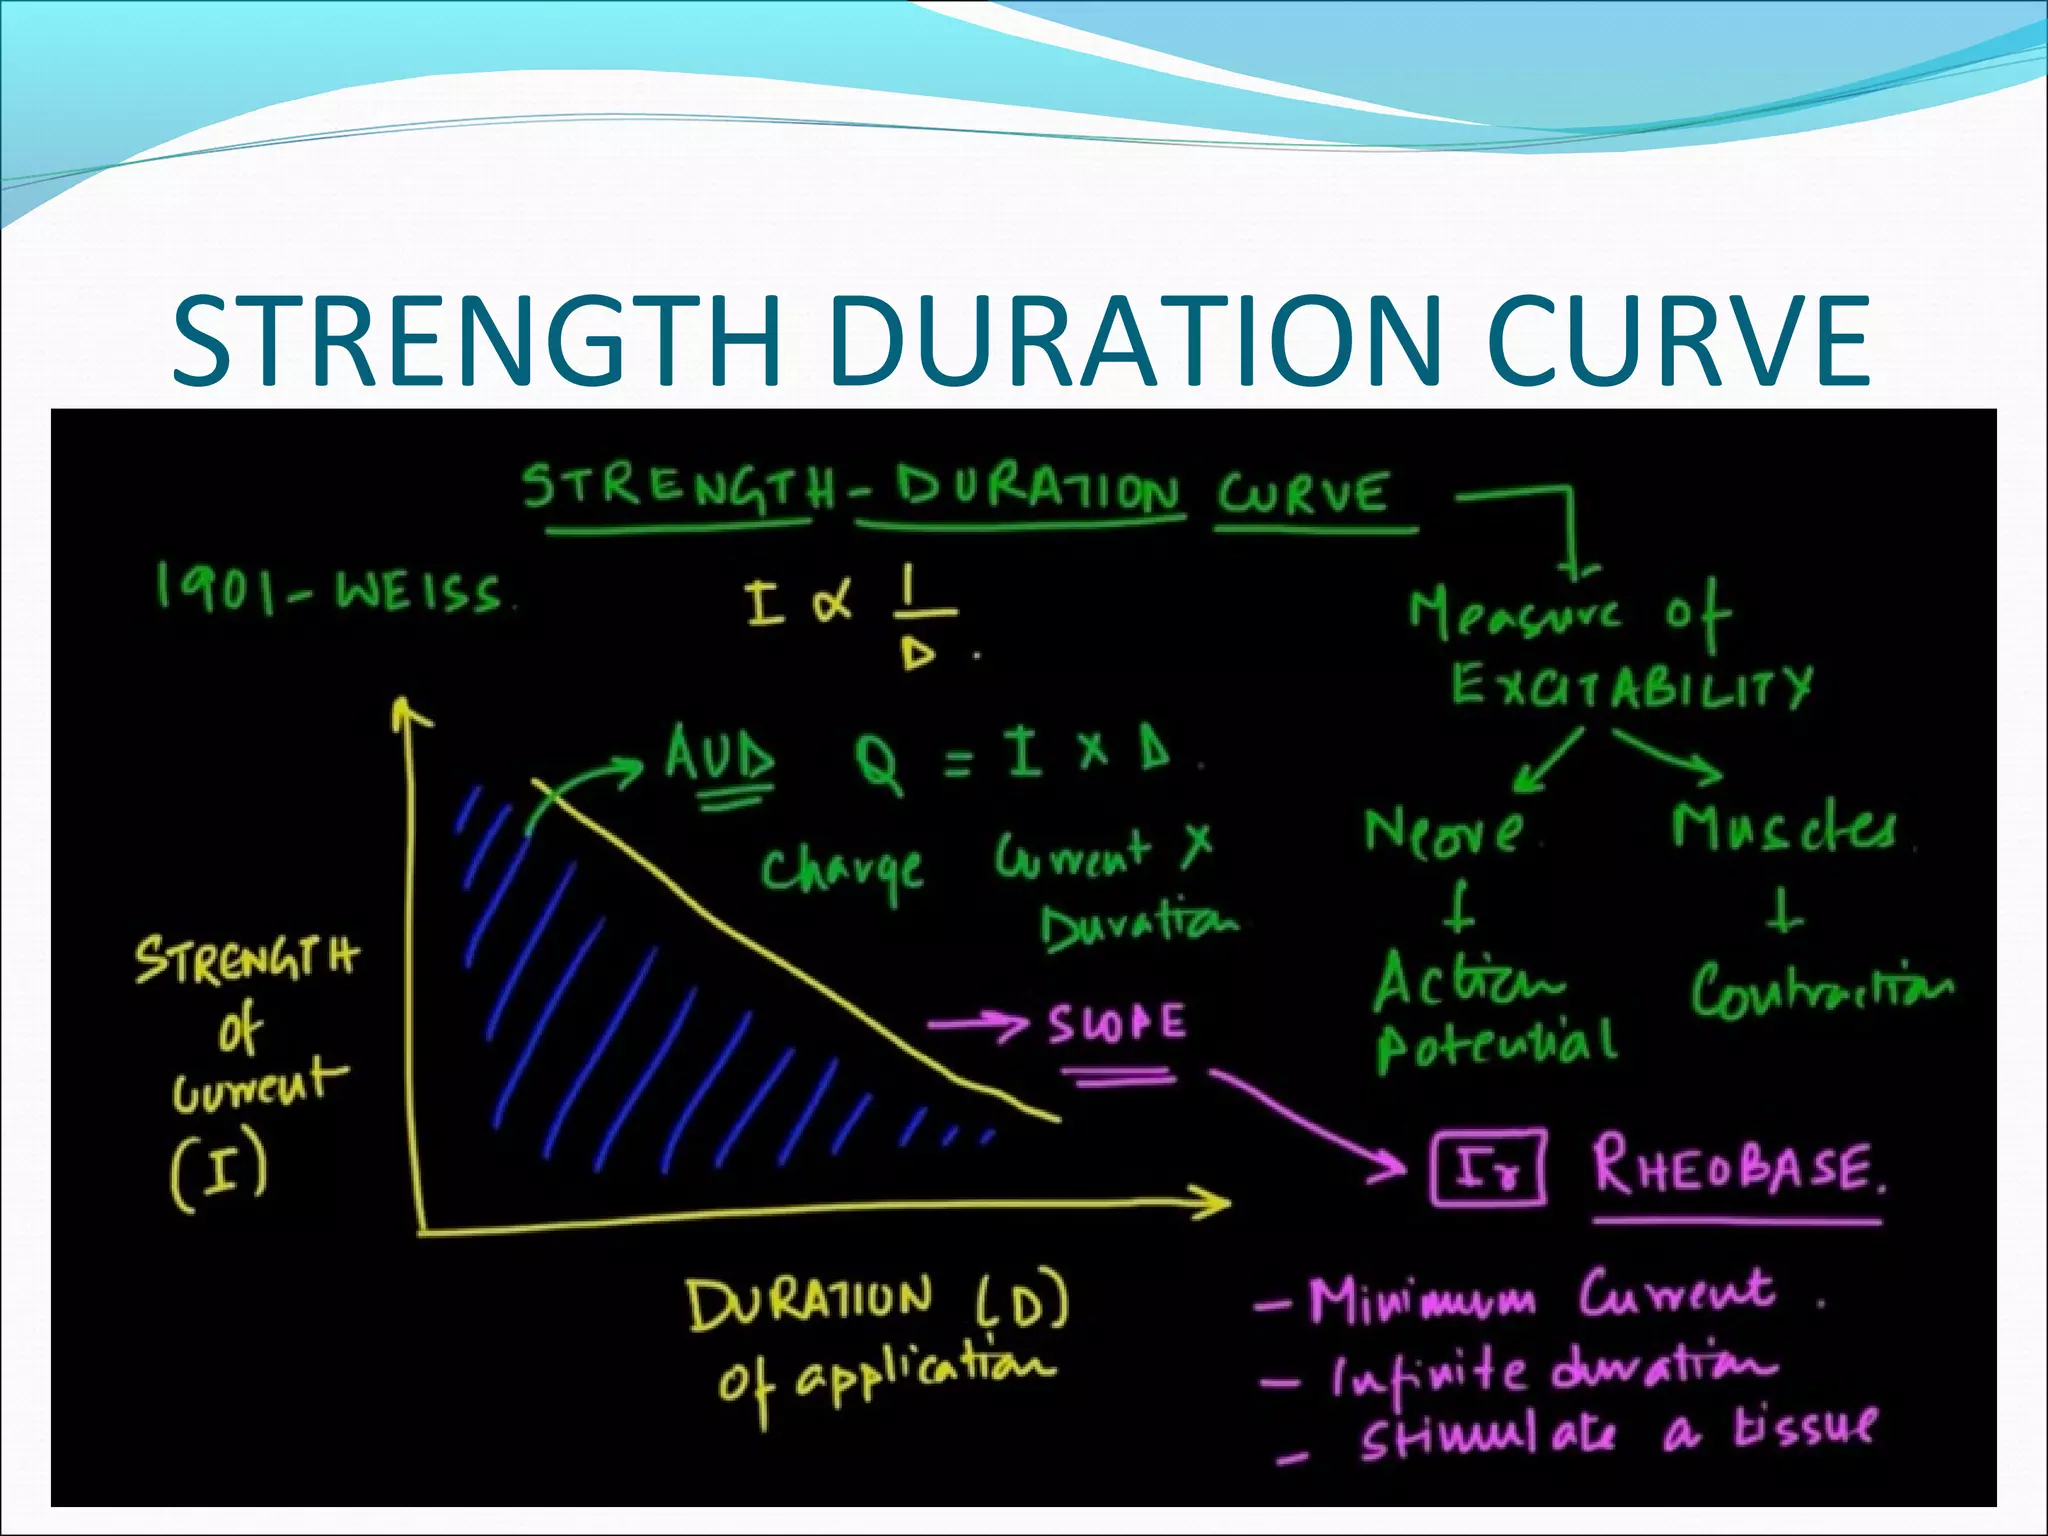 STRENGTH DURATION CURVE
STRENGTH-DURATION CURVE
1901-WEISS.
I ∝ 1/D.
Measure of
EXCITABILITY
AUD Q = I X D.
Charge Current X
Duration
Nerve.
Muscles.
Action
Potential
Contraction
STRENGTH
of
Current
(I)
SLOPE
Ir RHEOBASE.
DURATION (D)
of application
- Minimum Current.
- Infinite duration
- Stimulate a tissue